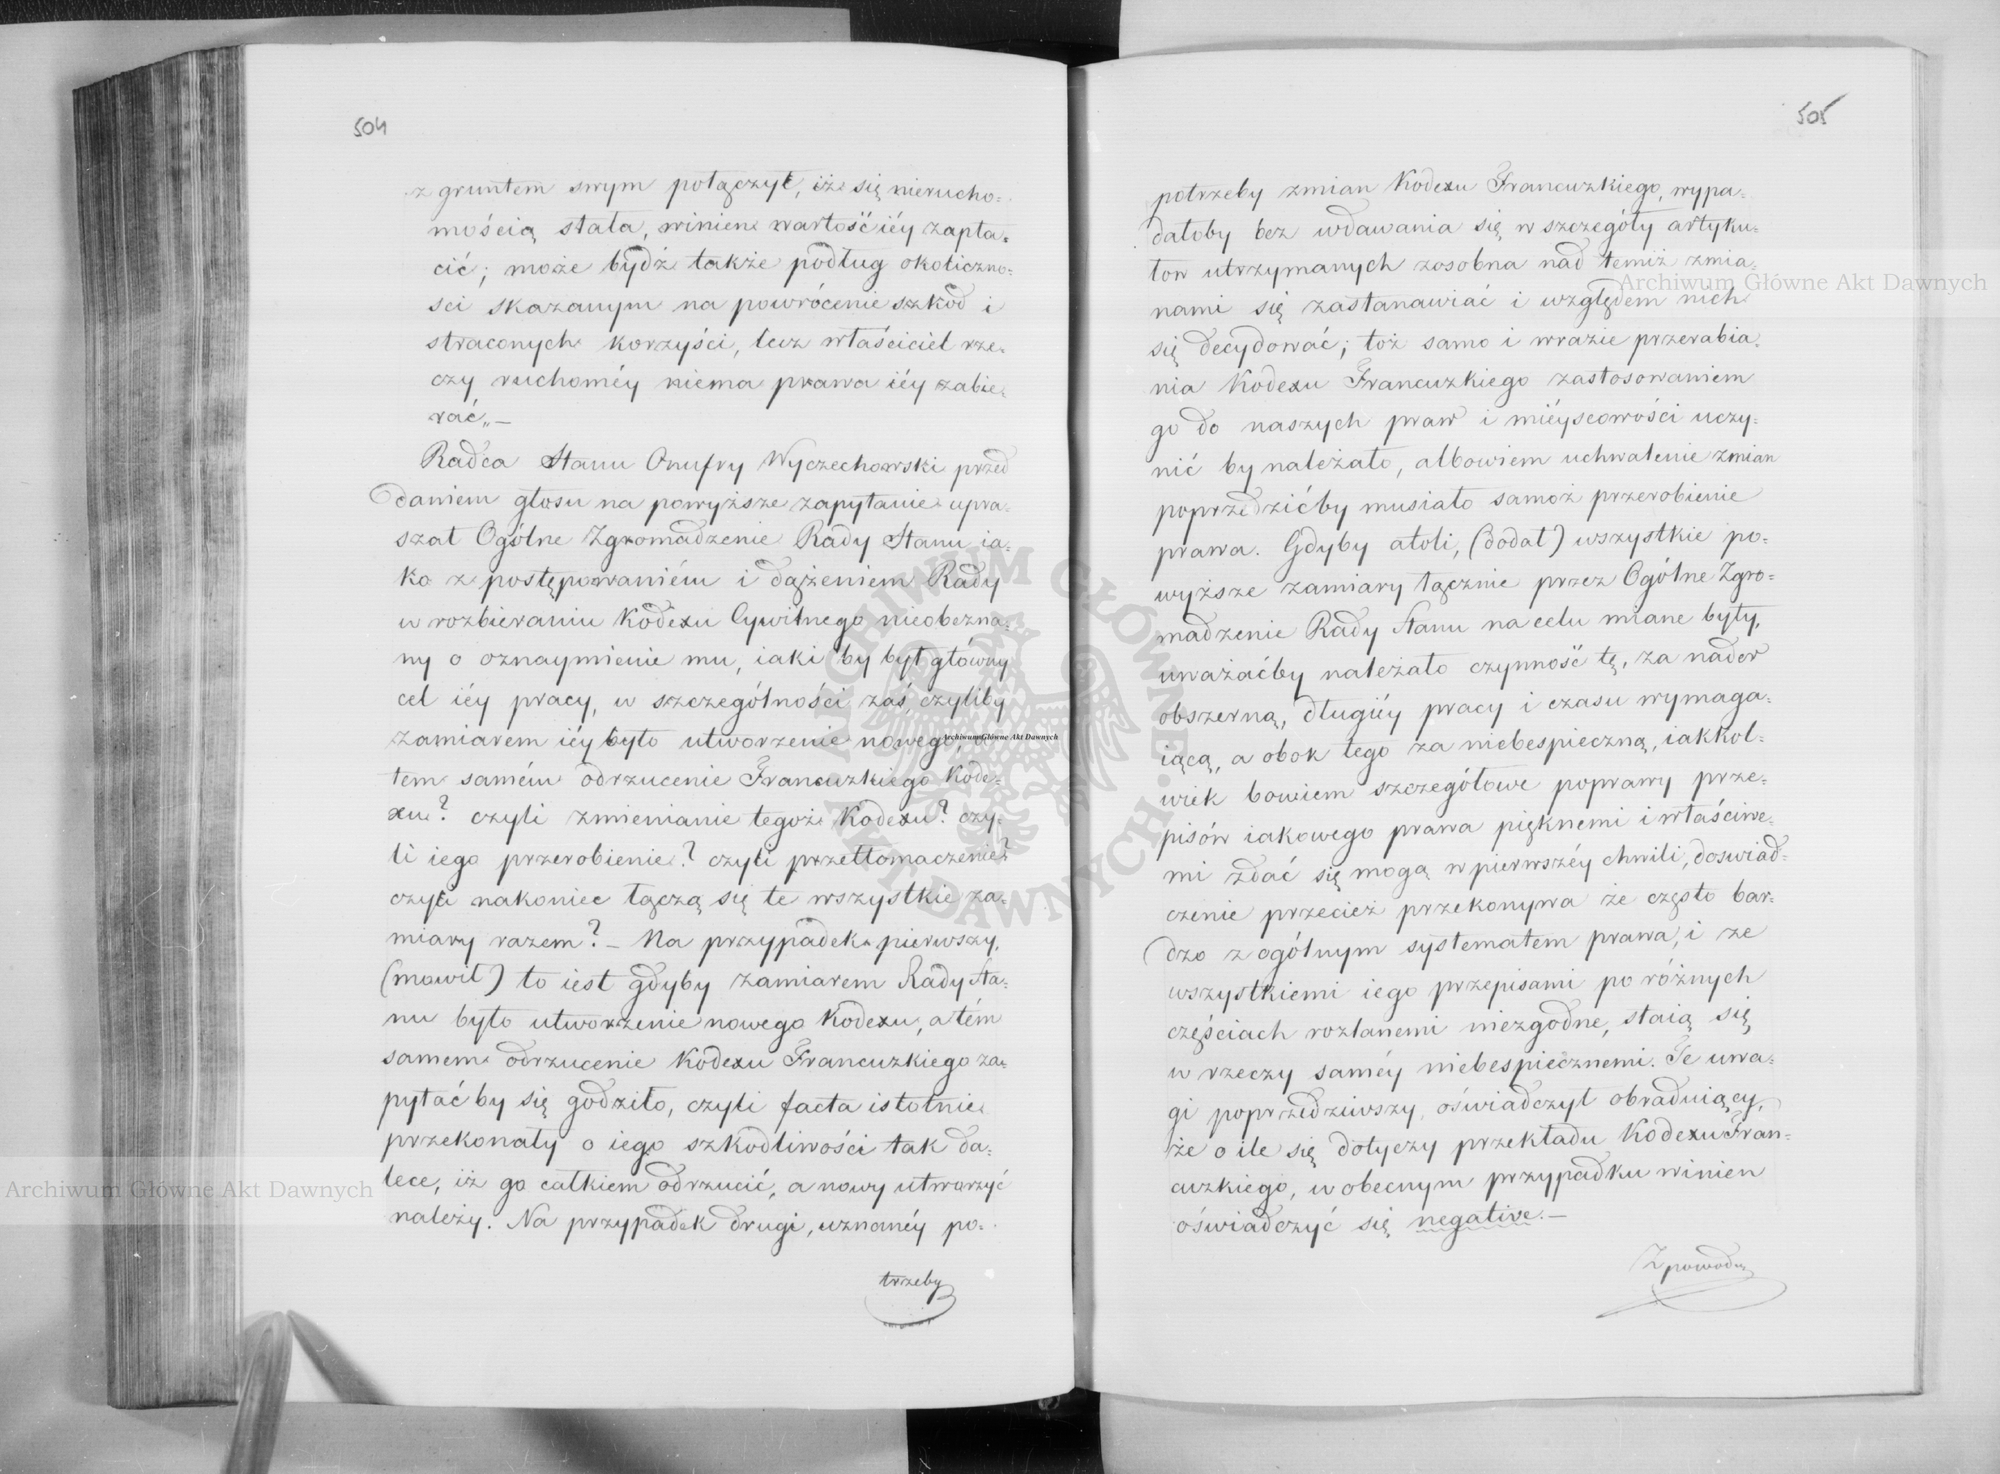 504
z gruntem swym połączył, iż się nierucho=
mością stała, winien wartość iéy zapła=
cić; może bydź także podług okoliczno=
sci skazanym na powrócenie szkód i
straconych korzyści, lecz właściciel rze=
czy ruchoméy niema prawa iéy zabie=
rać„ —
Radca Stanu Onufry Wyczechowski przed
daniem głosu na powyższe zapytanie upra=
szał Ogólne Zgromadzenie Rady Stanu ia=
ko z postępowaniém i dążeniem Rady
w rozbieraniu Kodexu Cywilnego nieobezna=
ny o oznaymienie mu, iaki by był główny
cel iéy pracy, w szczególności zaś, czyliby
zamiarem iéy było utworzenie nowego, a
tem samém odrzucenie Francuzkiego Kode=
xu? czyli zmienianie tegoż Kodexu? czy=
li iego przerobienie? czyli przetłomaczenie?
czyli nakoniec łączą się te wszystkie za=
miary razem? — Na przypadek pierwszy,
(mowił) to iest gdyby zamiarem Rady Sta=
nu było utworzenie nowego Kodexu, a tém
samem odrzucenie Kodexu Francuzkiego za=
pytać by się godziło, czyli facta istotnie
przekonały o iego szkodliwości tak da=
lece, iż go całkiem odrzucić, a nowy utworzyć
należy. Na przypadek drugi, uznanéy po=
trzeby
505
potrzeby zmian Kodexu Francuzkiego, wypa=
dałoby bez wdawania się w szczegóły artyku=
łow utrzymanych zosobna nad temiż zmia=
nami się zastanawiać i względem nich
się decydować; toż samo i wrazie przerabia=
nia Kodexu Francuzkiego zastosowaniem
go do naszych praw i miéyscowości uczy=
nić by należało, albowiem uchwalenie zmian
poprzedzićby musiało samoż przerobienie
prawa. Gdyby atoli, (dodał) wszystkie po=
wyższe zamiary łącznie przez Ogólne Zgro=
madzenie Rady Stanu na celu miane były,
uważaćby należało czynność tę, za nader
obszerną, długiéy pracy i czasu wymaga=
iącą, a obok tego za niebespieczną, iakkol=
wiek bowiem szczegółowe poprawy prze=
pisów iakowego prawa pięknemi i właściwe=
mi zdać się mogą w pierwszéy chwili, doswiad=
czenie przecież przekonywa że często bar=
dzo z ogólnym systematem prawa, i ze
wszystkiemi iego przepisami po różnych
częściach rozlanemi niezgodne, staią się
w rzeczy saméy niebespiecznemi. Te uwa=
gi poprzedziwszy, oświadczył obraduiący,
że o ile się dotyczy przekładu Kodexu Fran=
cuzkiego, w obecnym przypadku winien
oświadczyć się negative. —
Z powodu
Archiwum Główne Akt Dawnych
Archiwum Główne Akt Dawnych
Archiwum Główne Akt Dawnych
ARCHIWUM GŁÓWNE AKT DAWNYCH